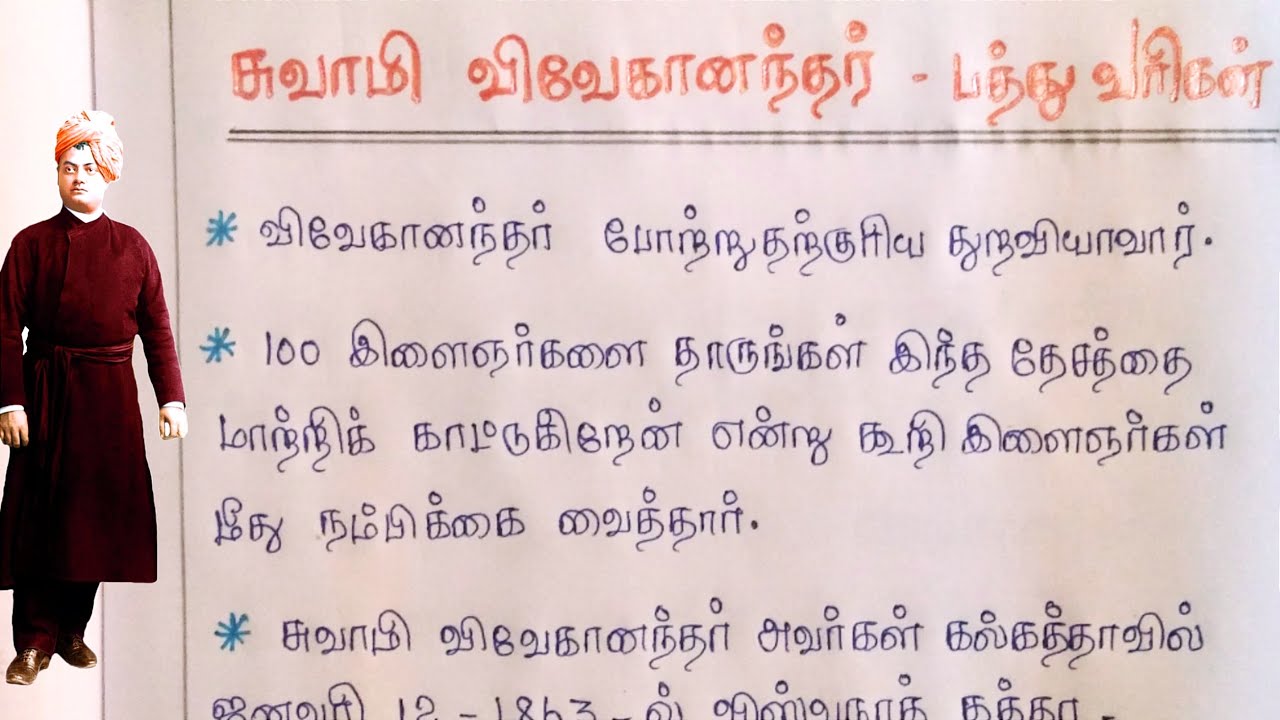 சுவாமி விவேகானந்தர் - பத்து வரிகள்
* விவேகானந்தர் போற்றுதற்குரிய துறவியாவார்.
* 100 இளைஞர்களை தாருங்கள் இந்த தேசத்தை
மாற்றிக் காட்டுகிறேன் என்று கூறி இளைஞர்கள்
மீது நம்பிக்கை வைத்தார்.
* சுவாமி விவேகானந்தர் அவர்கள் கல்கத்தாவில்
ஜனவரி 12 - 1863 - ல் விஸ்வநாத் தத்தா -